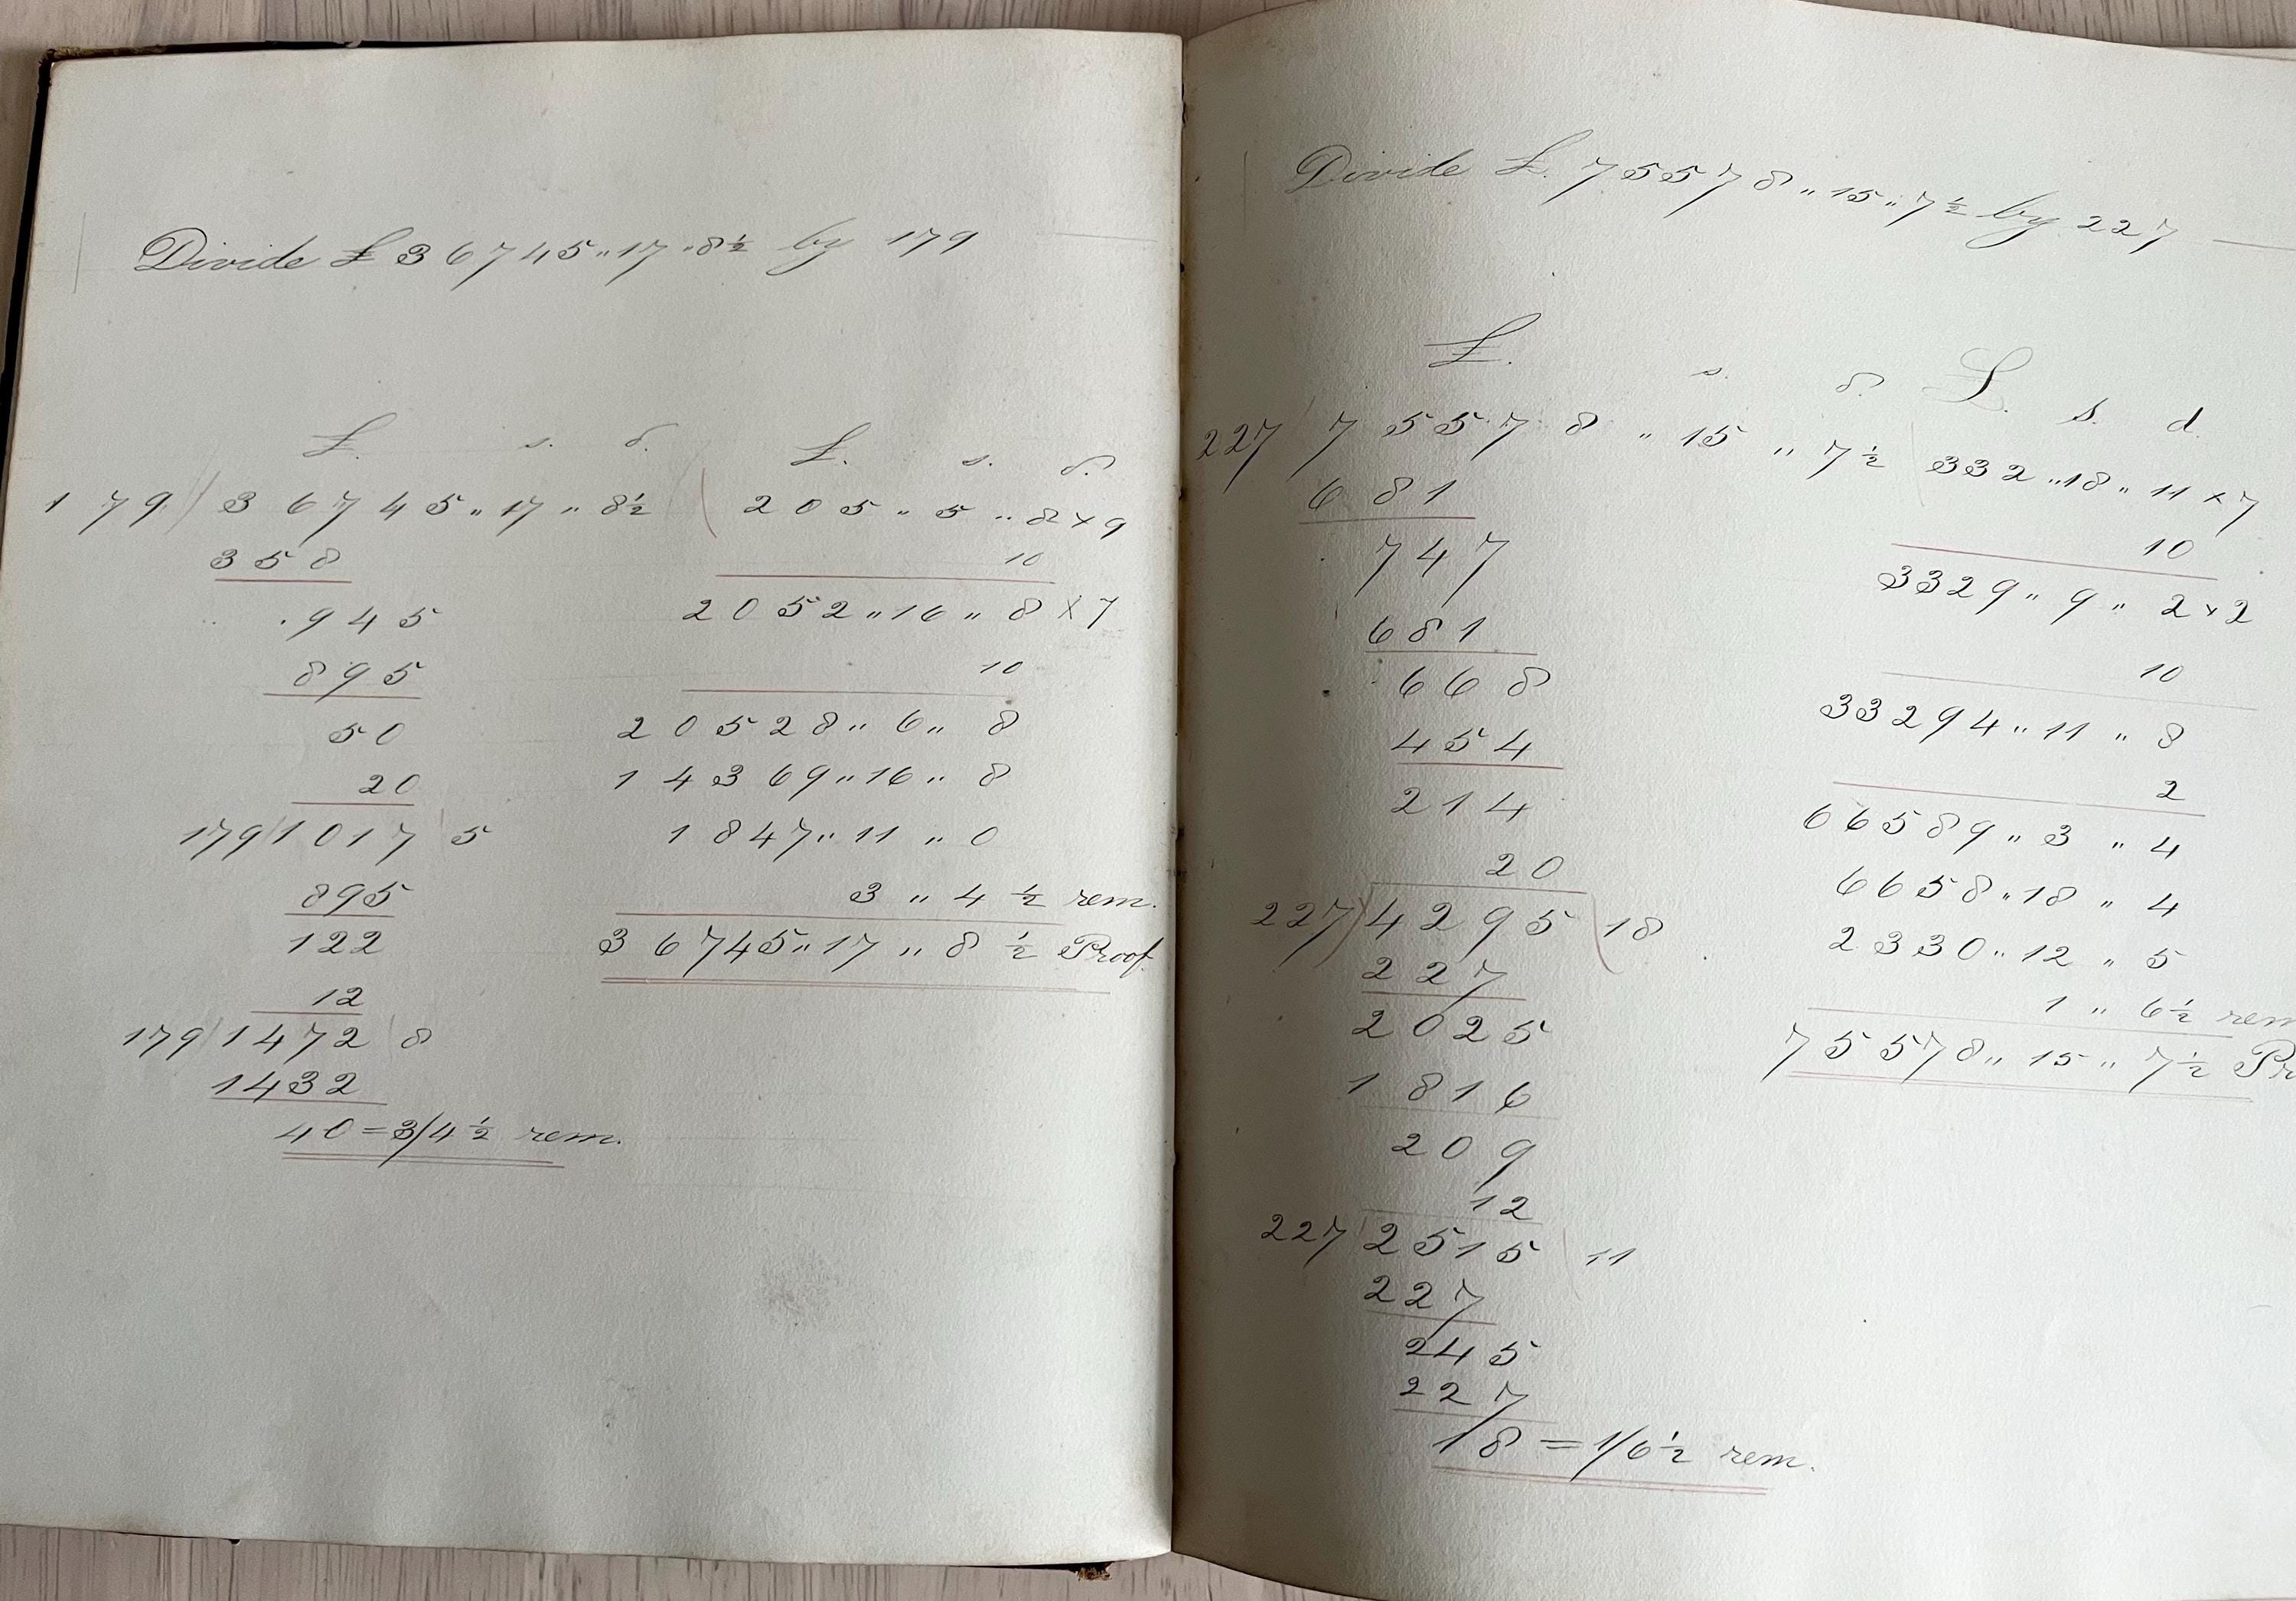 Divide £36745 „ 17 „ 8½ by 179
£. s. d. £. s. d.
179) 36745 „ 17 „ 8½ ( 205 „ 5 „ 8 × 9
358
10
945
2052 „ 16 „ 8 × 7
895
10
50
20528 „ 6 „ 8
20
14369 „ 16 „ 8
179) 1017 ( 5
1847 „ 11 „ 0
895
3 „ 4 ½ rem.
122
36745 „ 17 „ 8 ½ Proof
12
179) 1472 ( 8
1432
40 = 3/4 ½ rem.
Divide £. 75578 „ 15 „ 7½ by 227
£. s. d. £. s. d.
227) 75578 „ 15 „ 7½ ( 332 „ 18 „ 11 × 7
681
10
747
3329 „ 9 „ 2 × 2
681
10
668
33294 „ 11 „ 8
454
2
214
66589 „ 3 „ 4
20
6658 „ 18 „ 4
227) 4295 ( 18
2330 „ 12 „ 5
227
1 „ 6½ rem
2025
75578 „ 15 „ 7½ Pr
1816
209
12
227) 2515 ( 11
227
245
227
18 = 1/6½ rem.